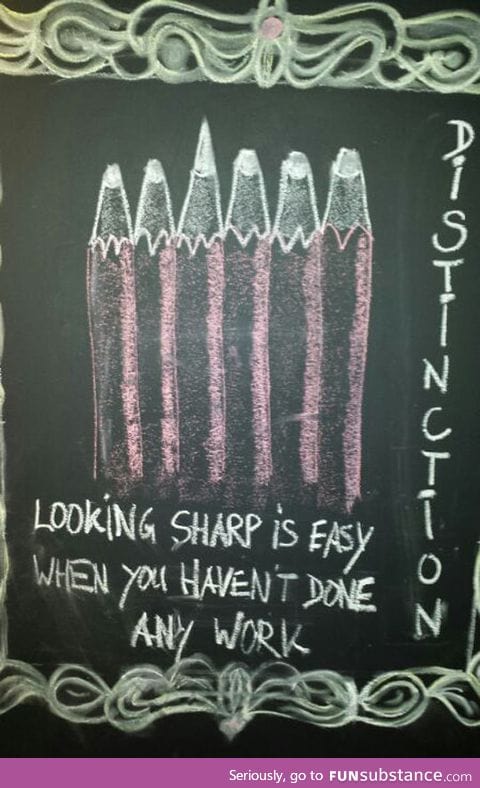 DiSTiNCTiON
LOOKiNG SHARP iS EASY
WHEN YOU HAVEN'T DONE
ANY WORK
Seriously, go to FUNsubstance.com